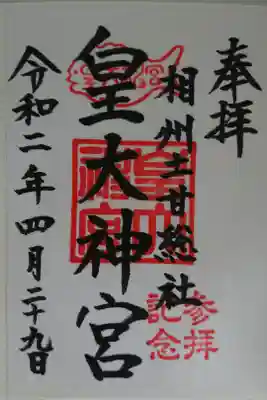 奉拝
相州土甘総社
皇大神宮
令和二年四月二十九日
参拝
記念